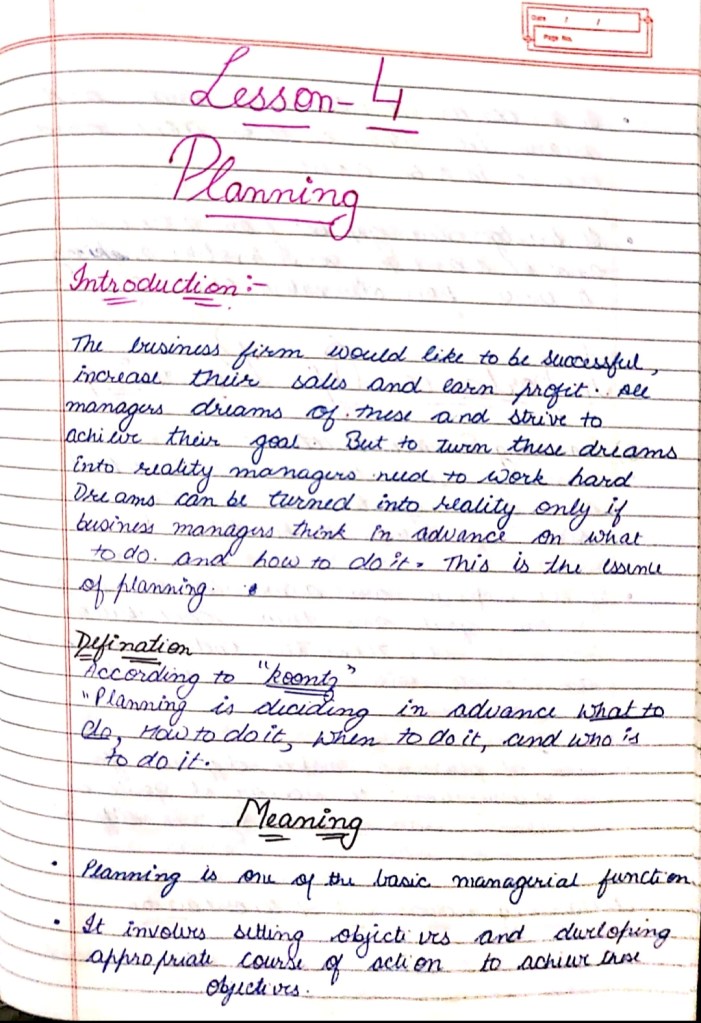 Date / /
Page No.
Lesson-4
Planning
Introduction:-
The business firm would like to be successful,
increase their sales and earn profit. All
managers dreams of these and strive to
achieve their goal. But to turn these dreams
into reality managers need to work hard
Dreams can be turned into reality only if
business managers think in advance on what
to do. and how to do it. This is the essence
of planning.
Defination
According to "koontz"
"Planning is deciding in advance what to
do, How to do it, when to do it, and who is
to do it.
Meaning
• Planning is one of the basic managerial function
• It involves setting objectives and developing
appropriate course of action to achieve these
objectives.